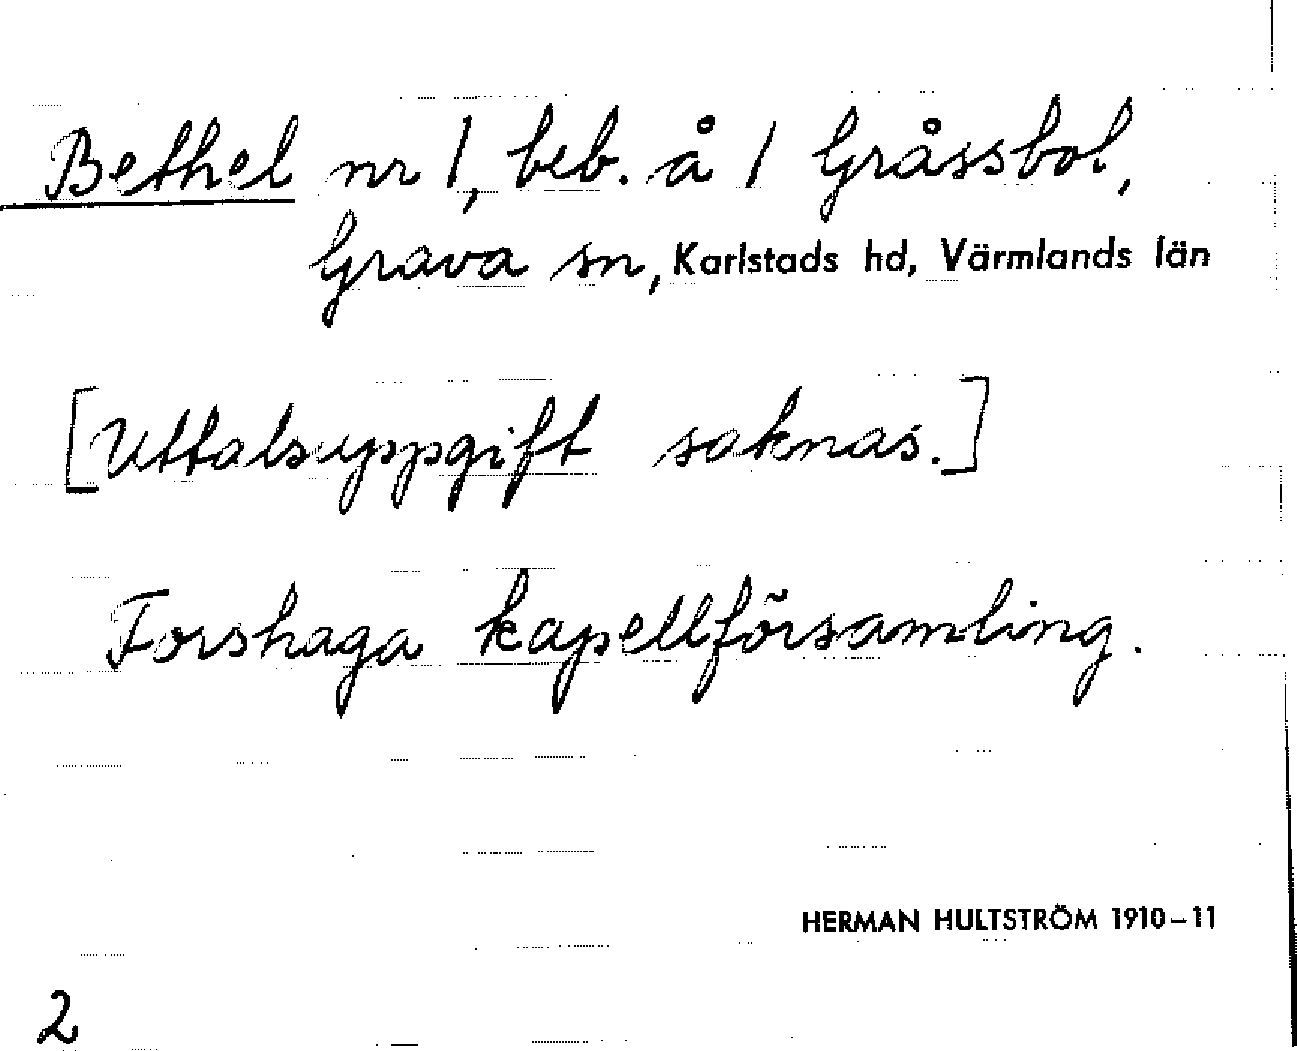 Bethel nr 1, beb. å 1 Gråssbol,
Grava sn, Karlstads hd, Värmlands län
[Uttalsuppgift saknas.]
Forshaga kapellförsamling.
HERMAN HULTSTRÖM 1910–11
2